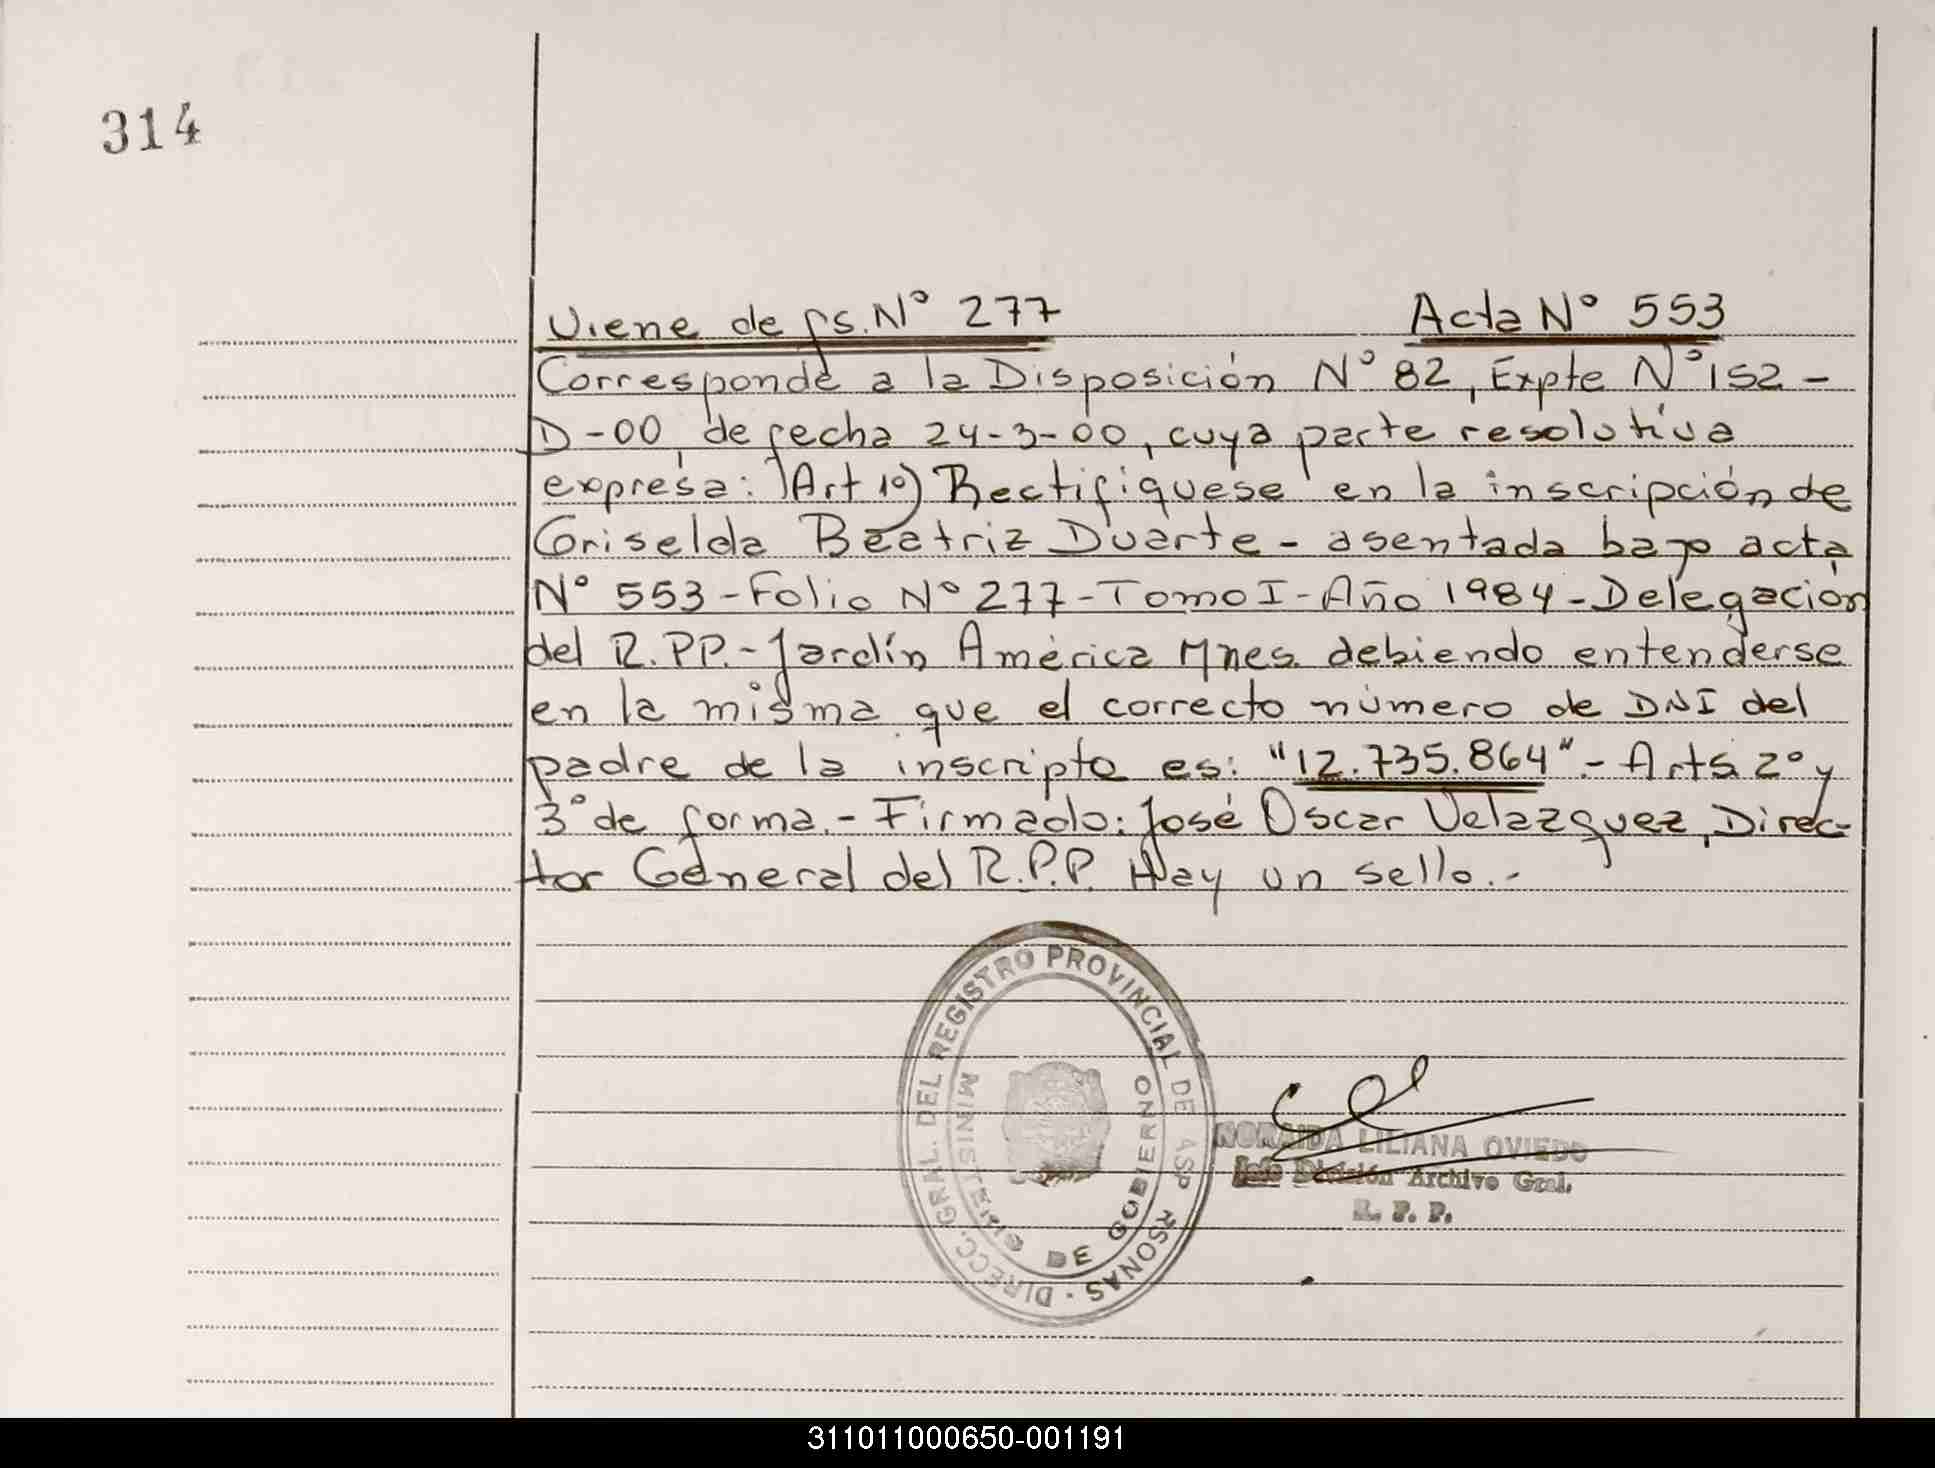 314
Viene de fs. N° 277 Acta N° 553
Corresponde a la Disposición N° 82, Expte N° 152-
D-00, de fecha 24-3-00, cuya parte resolutiva
expresa: Art 1º) Rectifiquese en la inscripción de
Griselda Beatriz Duarte - asentada bajo acta
N° 553 - Folio N° 277 - Tomo I - Año 1984 - Delegación
del R.P.P. - Jardín América Mnes. debiendo entenderse
en la misma que el correcto número de DNI del
padre de la inscripta es: "12.735.864".- Arts. 2º y
3º de forma.- Firmado: José Oscar Velazquez, Direc-
tor General del R.P.P. Hay un sello.-
DIRECC. GRAL. DEL REGISTRO PROVINCIAL DE LAS PERSONAS
MINISTERIO DE GOBIERNO
NORAIDA LILIANA OVIEDO
Jefe División Archivo Gral.
R. P. P.
311011000650-001191